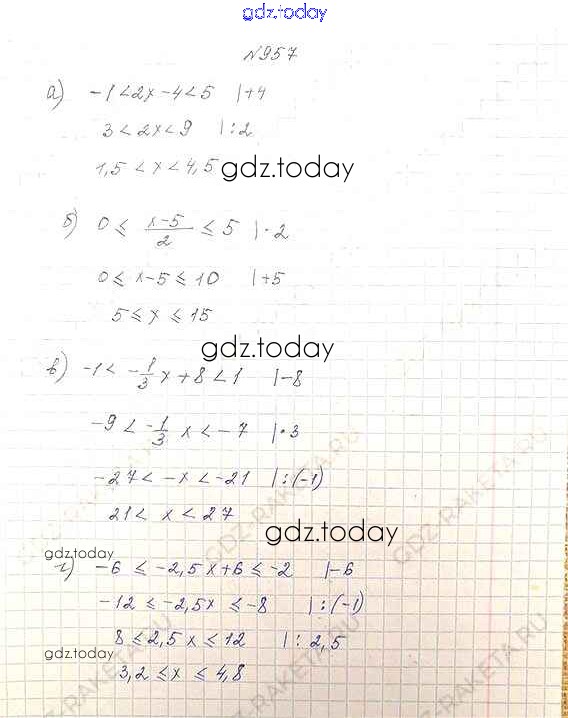 gdz.today
№957
а) -1<2x-4<5 |+4
3<2x<9 |:2
1,5<x<4,5
gdz.today
б) 0≤ (x-5)/2 ≤5 |·2
0≤x-5≤10 |+5
5≤x≤15
gdz.today
в) -1< -1/3 x+8<1 |-8
-9< -1/3 x<-7 |·3
-27<-x<-21 |:(-1)
21<x<27
gdz.today
gdz.today
г) -6≤-2,5x+6≤-2 |-6
-12≤-2,5x≤-8 |:(-1)
8≤2,5x≤12 |:2,5
gdz.today
3,2≤x≤4,8
GDZ-RAKETA.RU
GDZ-RAKETA.RU
GDZ-RAKETA.RU
GDZ-RAKETA.RU